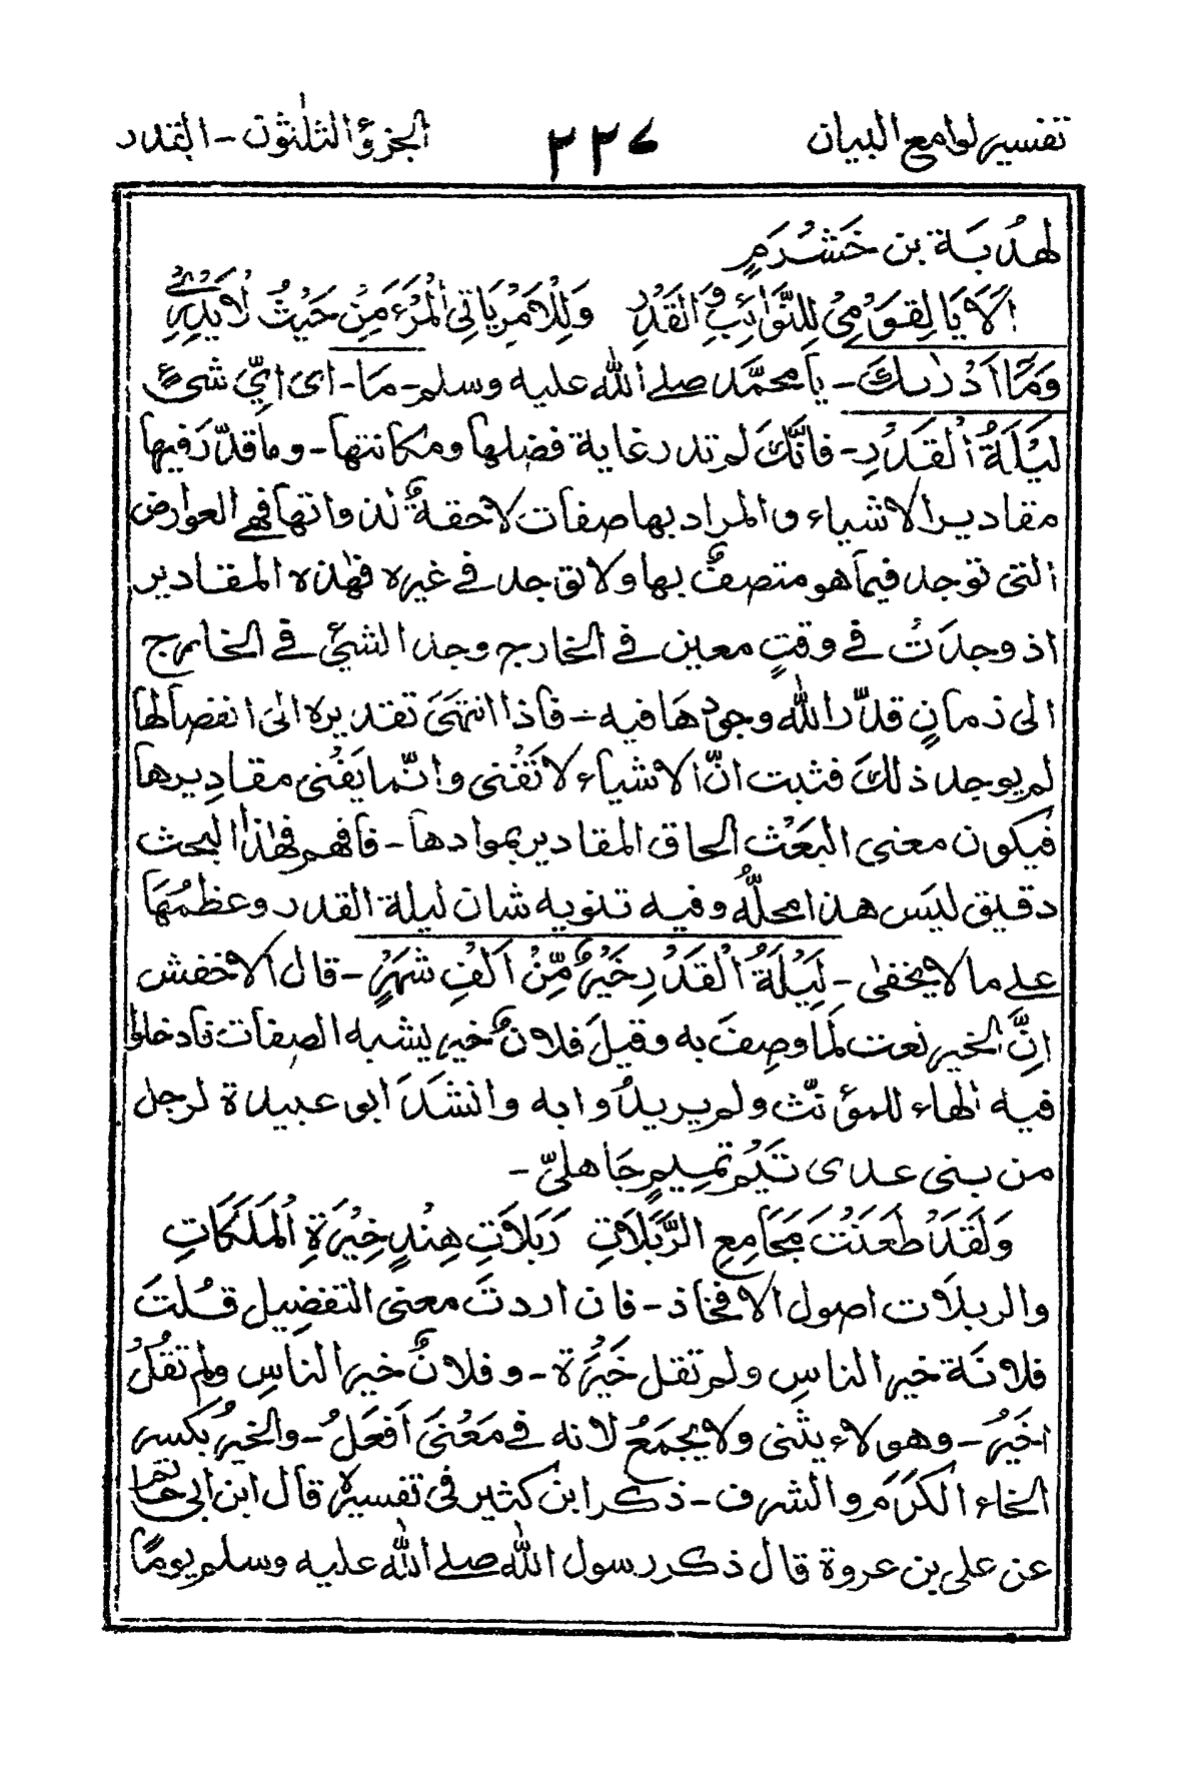 تفسير لوامع البيان ٢٢٧ الجزؤ الثلٰثون - القدر
لهدُبَة بن خَشْرَمٍ
اَلَا يَا لِقَوْمِيْ لِلنَّوَائِبِ وَالقَدْرِ وَلِلْاَمْرِ يَاتِى الْمَرْءَ مِنْ حَيْثُ لَا يَدْرِيْ
وَمَآ اَدْرٰىكَ - يا محمَّد صلے الله عليه وسلم - مَا - اى اىِّ شىءٍ
لَيْلَةُ الْقَدْرِ - فانَّكَ لم تدر غاية فضلها ومكانتها - وما قدّر فيها
مقادير الاشياء والمراد بها صفات لاحقةٌ لذواتها فهى العوارض
التى توجد فيما هو متصفٌ بها ولا توجد فے غيره فهٰذه المقادير
اذ وجدَتْ فے وقتٍ معين فے الخارج وجد الشيئ فے الخارج
الى زمانٍ قدّر الله وجودها فيه - فاذا انتهَىٰ تقديره الى انفصالها
لم يوجد ذلك فثبت انّ الاشياء لا تَفْنى وانّما يَفْنى مقادِيرها
فيكون معنى البَعْث الحاق المقادير بموادها - فافهم فهٰذا البحث
دقيق ليَس هذا محلُّه وفيه تنويه شان ليلة القدر وعظمُهَا
علے ما لا يخفٰى - لَيْلَةُ الْقَدْرِ خَيْرٌ مِّنْ اَلْفِ شَهْرٍ - قال الاخفش
انَّ الخير نعت لَما وصِفَ به وقيلَ فلانٌ خير يشبه الصفات فادخلوا
فيه الهاء للمؤنّث ولم يريدُوا به وانشَدَ ابو عبيدة لرجل
من بنى عدى تَيْم تَمِيمٍ جَاهلىّ -
وَلَقَدْ طَعَنْتُ مَجَامِعِ الرَّبَلَاتِ رَبَلَاتِ هِنْدٍ خِيْرَةِ الْمَلَكَاتِ
والربلات اصول الافخاذ - فان اردتَ معنى التفضيل قُلتَ
فلانَة خير الناسِ ولم تقل خَيْرَة - وفلانٌ خير النَاسِ ولم تقُلْ
اخَيْرُ - وهو لاء يثنى ولا يجْمَعُ لانه فے مَعْنَى اَفْعَلُ - والخيرُ بكسر
الخاء الكَرَم والشرف - ذكر ابن كثير فى تفسيره قال ابن ابى حاتم
عن على بن عروة قال ذكر رسول الله صلے الله عليه وسلم يومًا